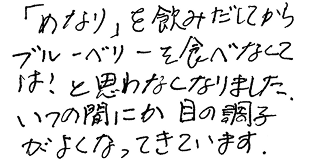 「めなり」を飲みだしてから
ブルーベリーを食べなくて
は!と思わなくなりました。
いつの間にか目の調子
がよくなってきています。